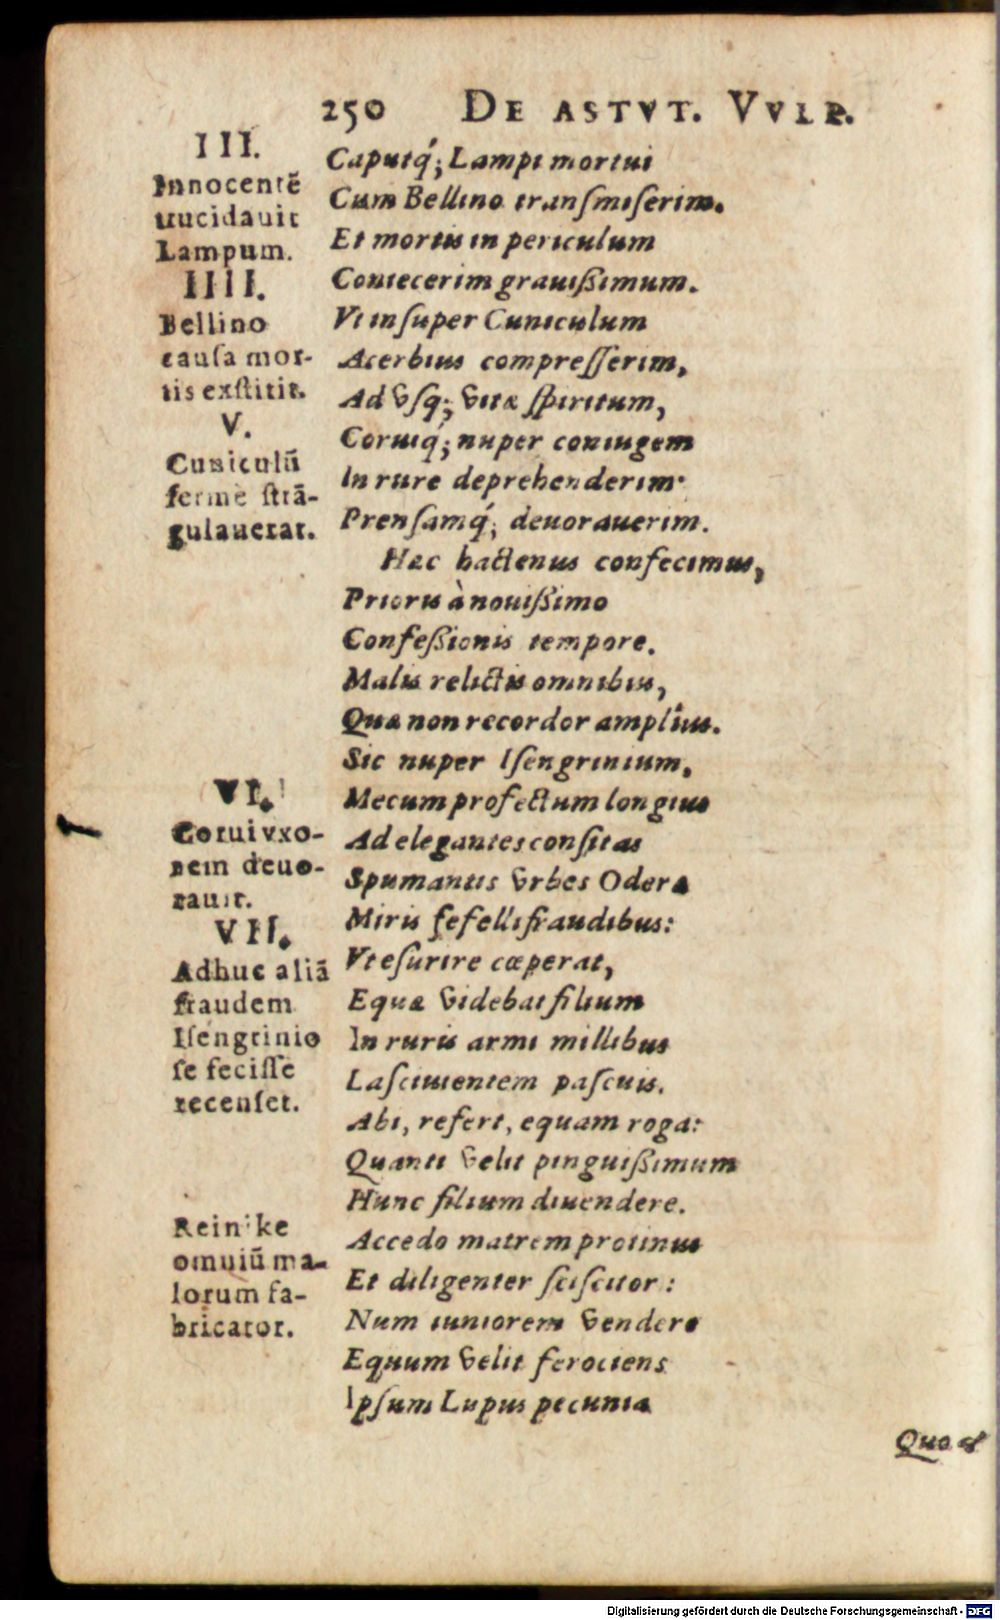 250 DE ASTVT. VVLP.
III.
Innocentẽ
trucidauit
Lampum.
IIII.
Bellino
causa mor-
tis exstitit.
V.
Cuniculũ
ferme strã-
gulauerat.
VI.
Corui vxo-
rem deuo-
rauit.
VII.
Adhuc aliã
fraudem
Isengrinio
se fecisse
recenset.
Reinike
omniũ ma-
lorum fa-
bricator.
Caputq́; Lampi mortui
Cum Bellino transmiserim.
Et mortis in periculum
Coniecerim grauißimum.
Vt insuper Cuniculum
Acerbius compresserim,
Ad vsq; vitæ spiritum,
Coruiq́; nuper coniugem
In rure deprehenderim·
Prensamq́; deuorauerim.
Hæc hactenus confecimus,
Prioris à nouißimo
Confeßionis tempore.
Malis relictis omnibus,
Quæ non recordor amplius.
Sic nuper Isengrinium,
Mecum profectum longius
Ad elegantes consitas
Spumantis vrbes Oderæ
Miris fefelli fraudibus:
Vt esurire cœperat,
Equæ videbat filium
In ruris armi millibus
Lasciuientem pascuis.
Abi, refert, equam roga:
Quanti velit pinguißimum
Hunc filium diuendere.
Accedo matrem protinus
Et diligenter sciscitor:
Num iuniorem vendere
Equum velit ferociens
Ipsum Lupus pecunia
Quod